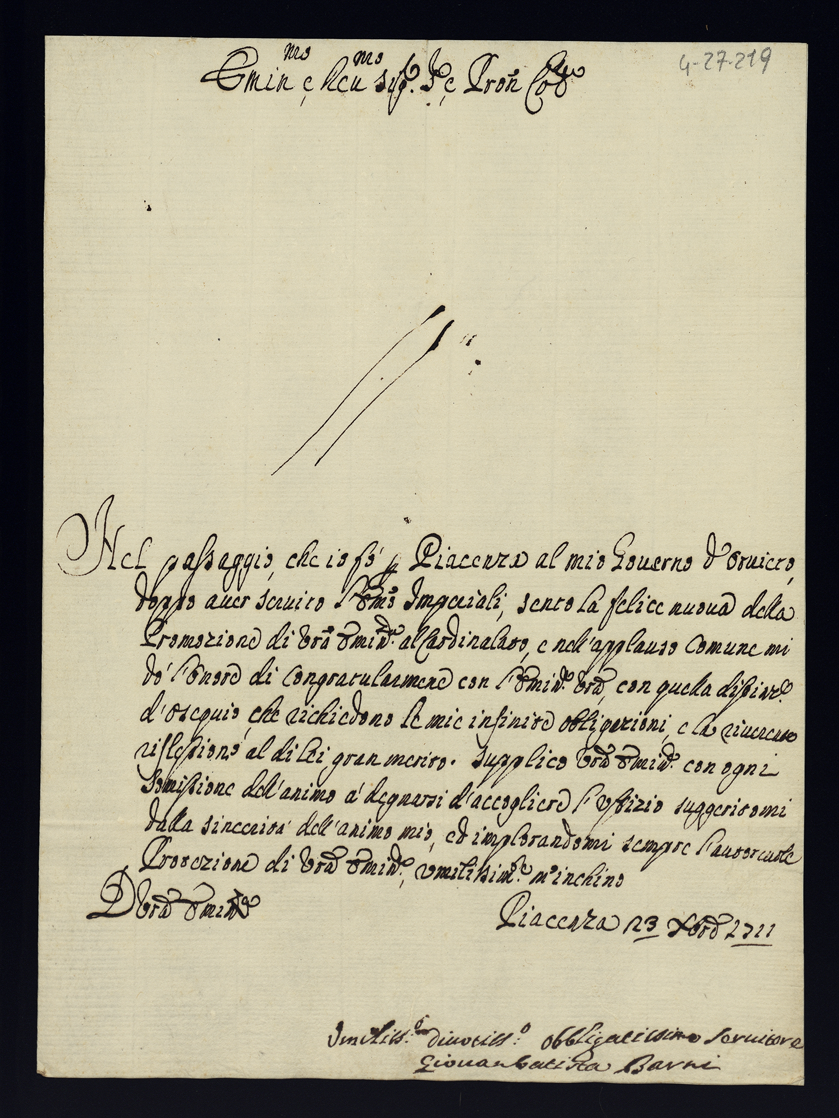 4-27-219
Emin^mo e Reu^mo Sig.^r e Pron Col^mo
Nel passaggio, che io fò p Piacenza al mio Gouerno d'Oruieto,
doppo auer seruito l'Em̃o Imperiali, sento la felice nuoua della
Promozione di Vrã Emin.^za al Cardinalato, e nell'applauso comune mi
dò l'onore di congratularmene con l'Emin.^za Vrã, con quella
d'osequio, che richiedono le mie infinite obbligazioni, e la riuerente
riflessione al di lei gran merito. Supplico Vrã Emin.^za con ogni
somissione dell'animo à degnarsi d'accogliere l'Vffizio suggeritomi
dalla sincerità dell'animo mio, ed implorandomi sempre l'autoreuole
Protezione di Vrã Emin.^za, vmilissim.^te m'inchino
D Vrã Emin^za
Piacenza 23 Xbre 1711
Vmiliss.^o diuotiss.^o obbligatissimo Seruitore
Giouanbatista Barni